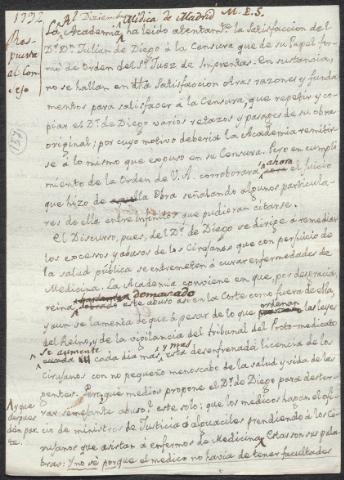 1792 Al Diziembre
Médica de Madrid M.P.S.
Respuesta al Consejo
La Academia ha leido atentamte. la satisfaccion del
Dr. Dn. Julian de Diego á la Censura que de su Papel for-
mó de orden del Sr. Juez de Imprentas. En sustancia,
no se hallan en dha satisfaccion otras razones y funda-
mentos para satisfacer á la Censura, que repetir y co-
piar el Dr. de Diego varios retazos y pasages de su obra
original; por cuyo motivo deberia la Academia remitir-
se á lo mismo que expuso en su Censura. Pero en cumpli-
miento de la Orden de V.A. corroborará ahora el juicio
que hizo de aquella Obra señalando algunos particula-
res de ella entre infinitos que pudieran citarse.
El Discurso, pues, del Dr. de Diego se dirige á remediar
los excesos y abusos de los Cirujanos que con perjuicio de
la salud pública se entremeten á curar enfermedades de
Medicina. La Academia conviene en que, por desgracia,
reina demasiado este abuso asi en la Corte como fuera de ella,
y aun se lamenta de que á pesar de lo que ordenan las leyes
del Reino, y de la vigilancia del Tribunal del Proto-medicato
se aumente cada dia mas y mas esta desenfrenada licencia de los
Cirujanos con no pequeño menoscabo de la salud y vida de las
gentes. Pero qué medios propone el Dr. de Diego para dester-
rar semejante abuso? este solo; que los medicos hagan el ofi-
cio de ministros de Justicia ó alguaciles prendiendo á los Ci-
rujanos que asistan á enfermos de Medicina. Estas son sus pala-
bras: Y no sé porque el medico no havia de tener facultades